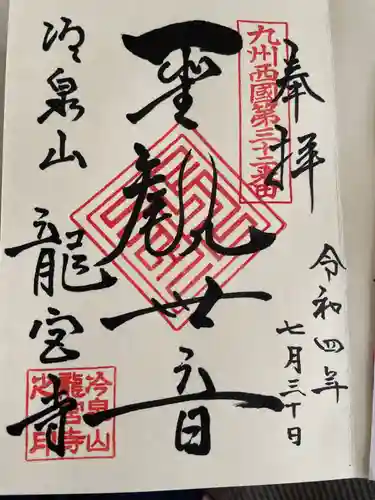 奉拝
九州西國第三十二番
令和四年
七月三十日
聖観世音
冷泉山
龍宮寺
冷泉山
龍宮寺